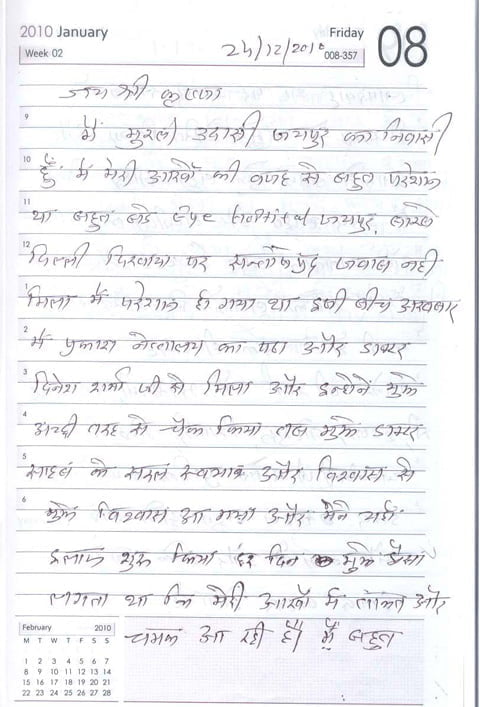 2010 January
Friday
Week 02
24/12/2010
008-357
08
जय श्री कृष्णा
9
मैं मुरली उदासी जयपुर का निवासी
10
हूँ मैं मेरी आखों की वजह से बहुत परेशान
11
था बहुत बडे eye Hospital जयपुर,
12
दिल्ली दिखाया पर सन्तोषप्रद जवाब नही
1
मिला मैं परेशान हो गया था इसी बीच अखबार
2
में प्रकाश नेत्रालय का पढा और डाक्टर
3
दिनेश शर्मा जी से मिला और इन्होनें मुझे
4
अच्छी तरह से चैक किया तब मुझे डाक्टर
5
साहब के सरल स्वभाव और विश्वास से
6
मुझे विश्वास आ गया और मैने यहाँ
इलाज शुरू किया हर दिन मुझे ऐसा
लगता था कि मेरी आखों में ताकत और
चमक आ रही है। मैं बहुत
February 2010
M T W T F S S
1 2 3 4 5 6 7
8 9 10 11 12 13 14
15 16 17 18 19 20 21
22 23 24 25 26 27 28